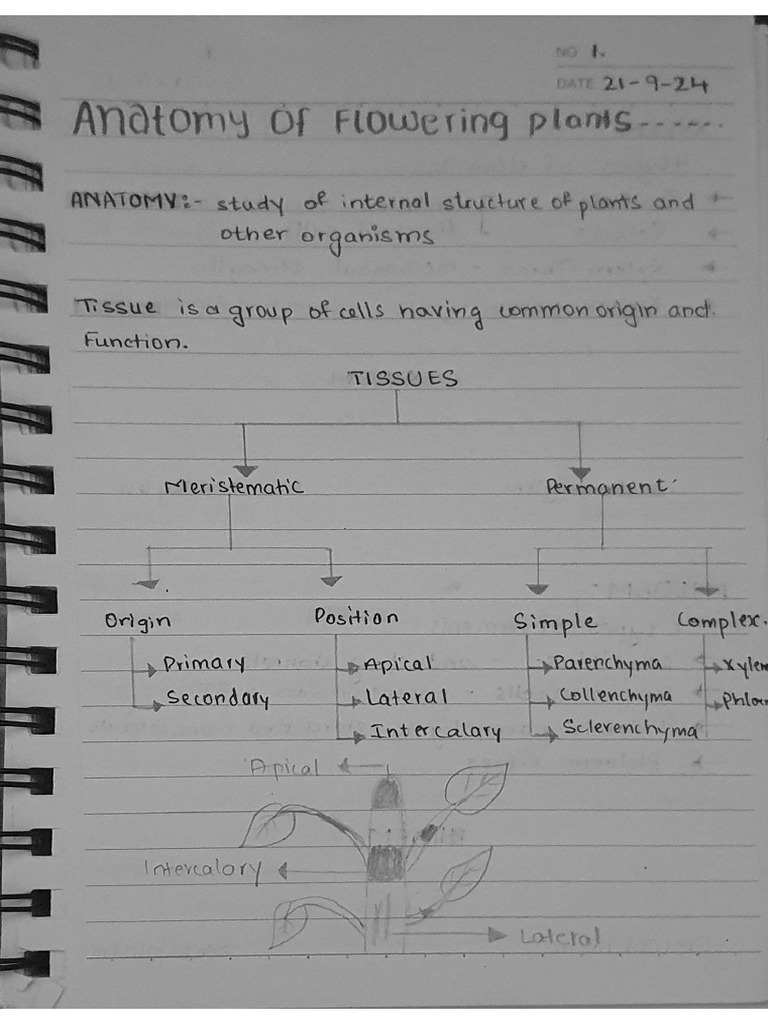 NO 1.
DATE 21-9-24
Anatomy of Flowering plants------
ANATOMY:- study of internal structure of plants and
other organisms
Tissue is a group of cells having common origin and
Function.
TISSUES
Meristematic Permanent
Origin Position Simple Complex.
Primary Apical Parenchyma Xylem
Secondary Lateral Collenchyma Phloem
Intercalary Sclerenchyma
Apical
Intercalory
Lateral